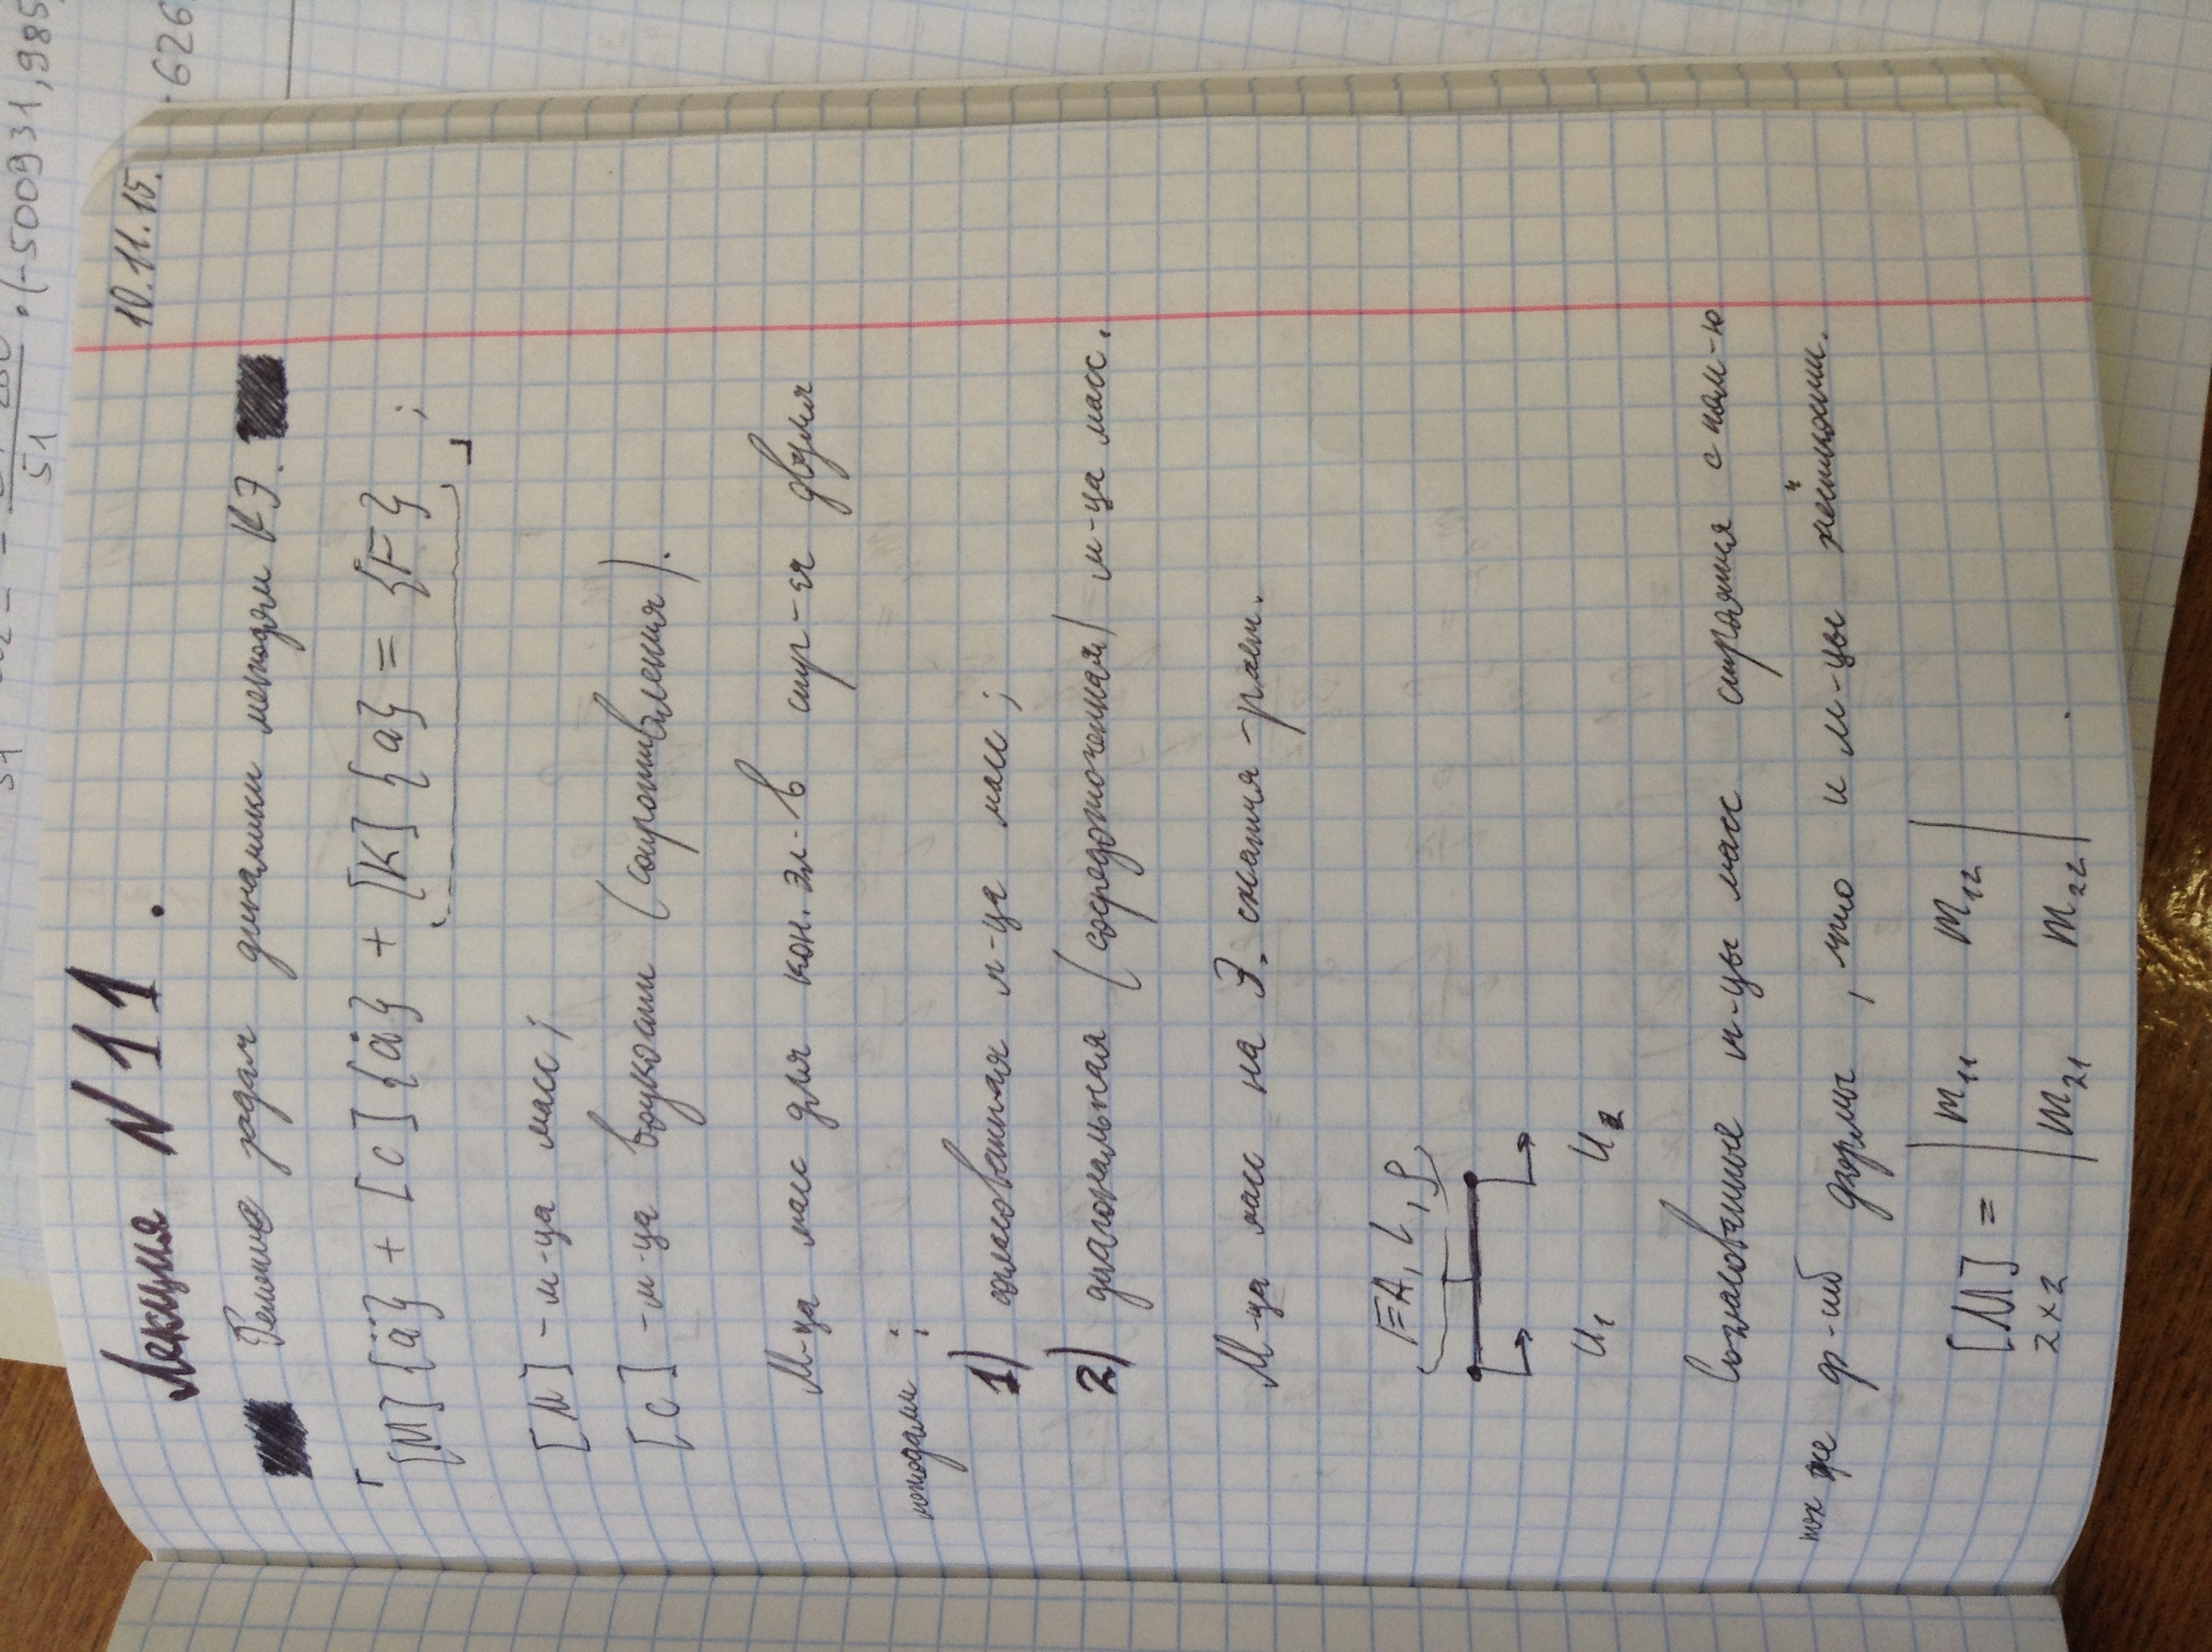 10.11.15.
Лекция №11.
Решение задач динамики методом КЭ.
[M]{ä} + [c]{ȧ} + [K]{a} = {F} ;
[M] - м-ца масс;
[c] - м-ца вязкости (сопротивления).
М-ца масс для кон. эл-в стр-ся двумя
методами:
1) согласованная м-ца масс;
2) диагональная (сосредоточенная) м-ца масс.
М-ца масс на Э. сжатия-раст.
E=A, L, ρ
u₁ u₂
Согласованные м-цы масс строятся с пом-ю
тех же ф-ий формы, что и м-цы жёсткости.
[M] = | m₁₁ m₁₂ |
2x2 | m₂₁ m₂₂ |
51
(-500931,985
626